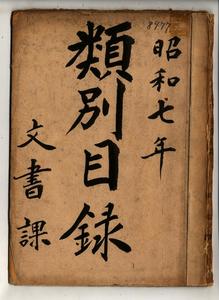 8977
昭和七年
類別目録
文書課